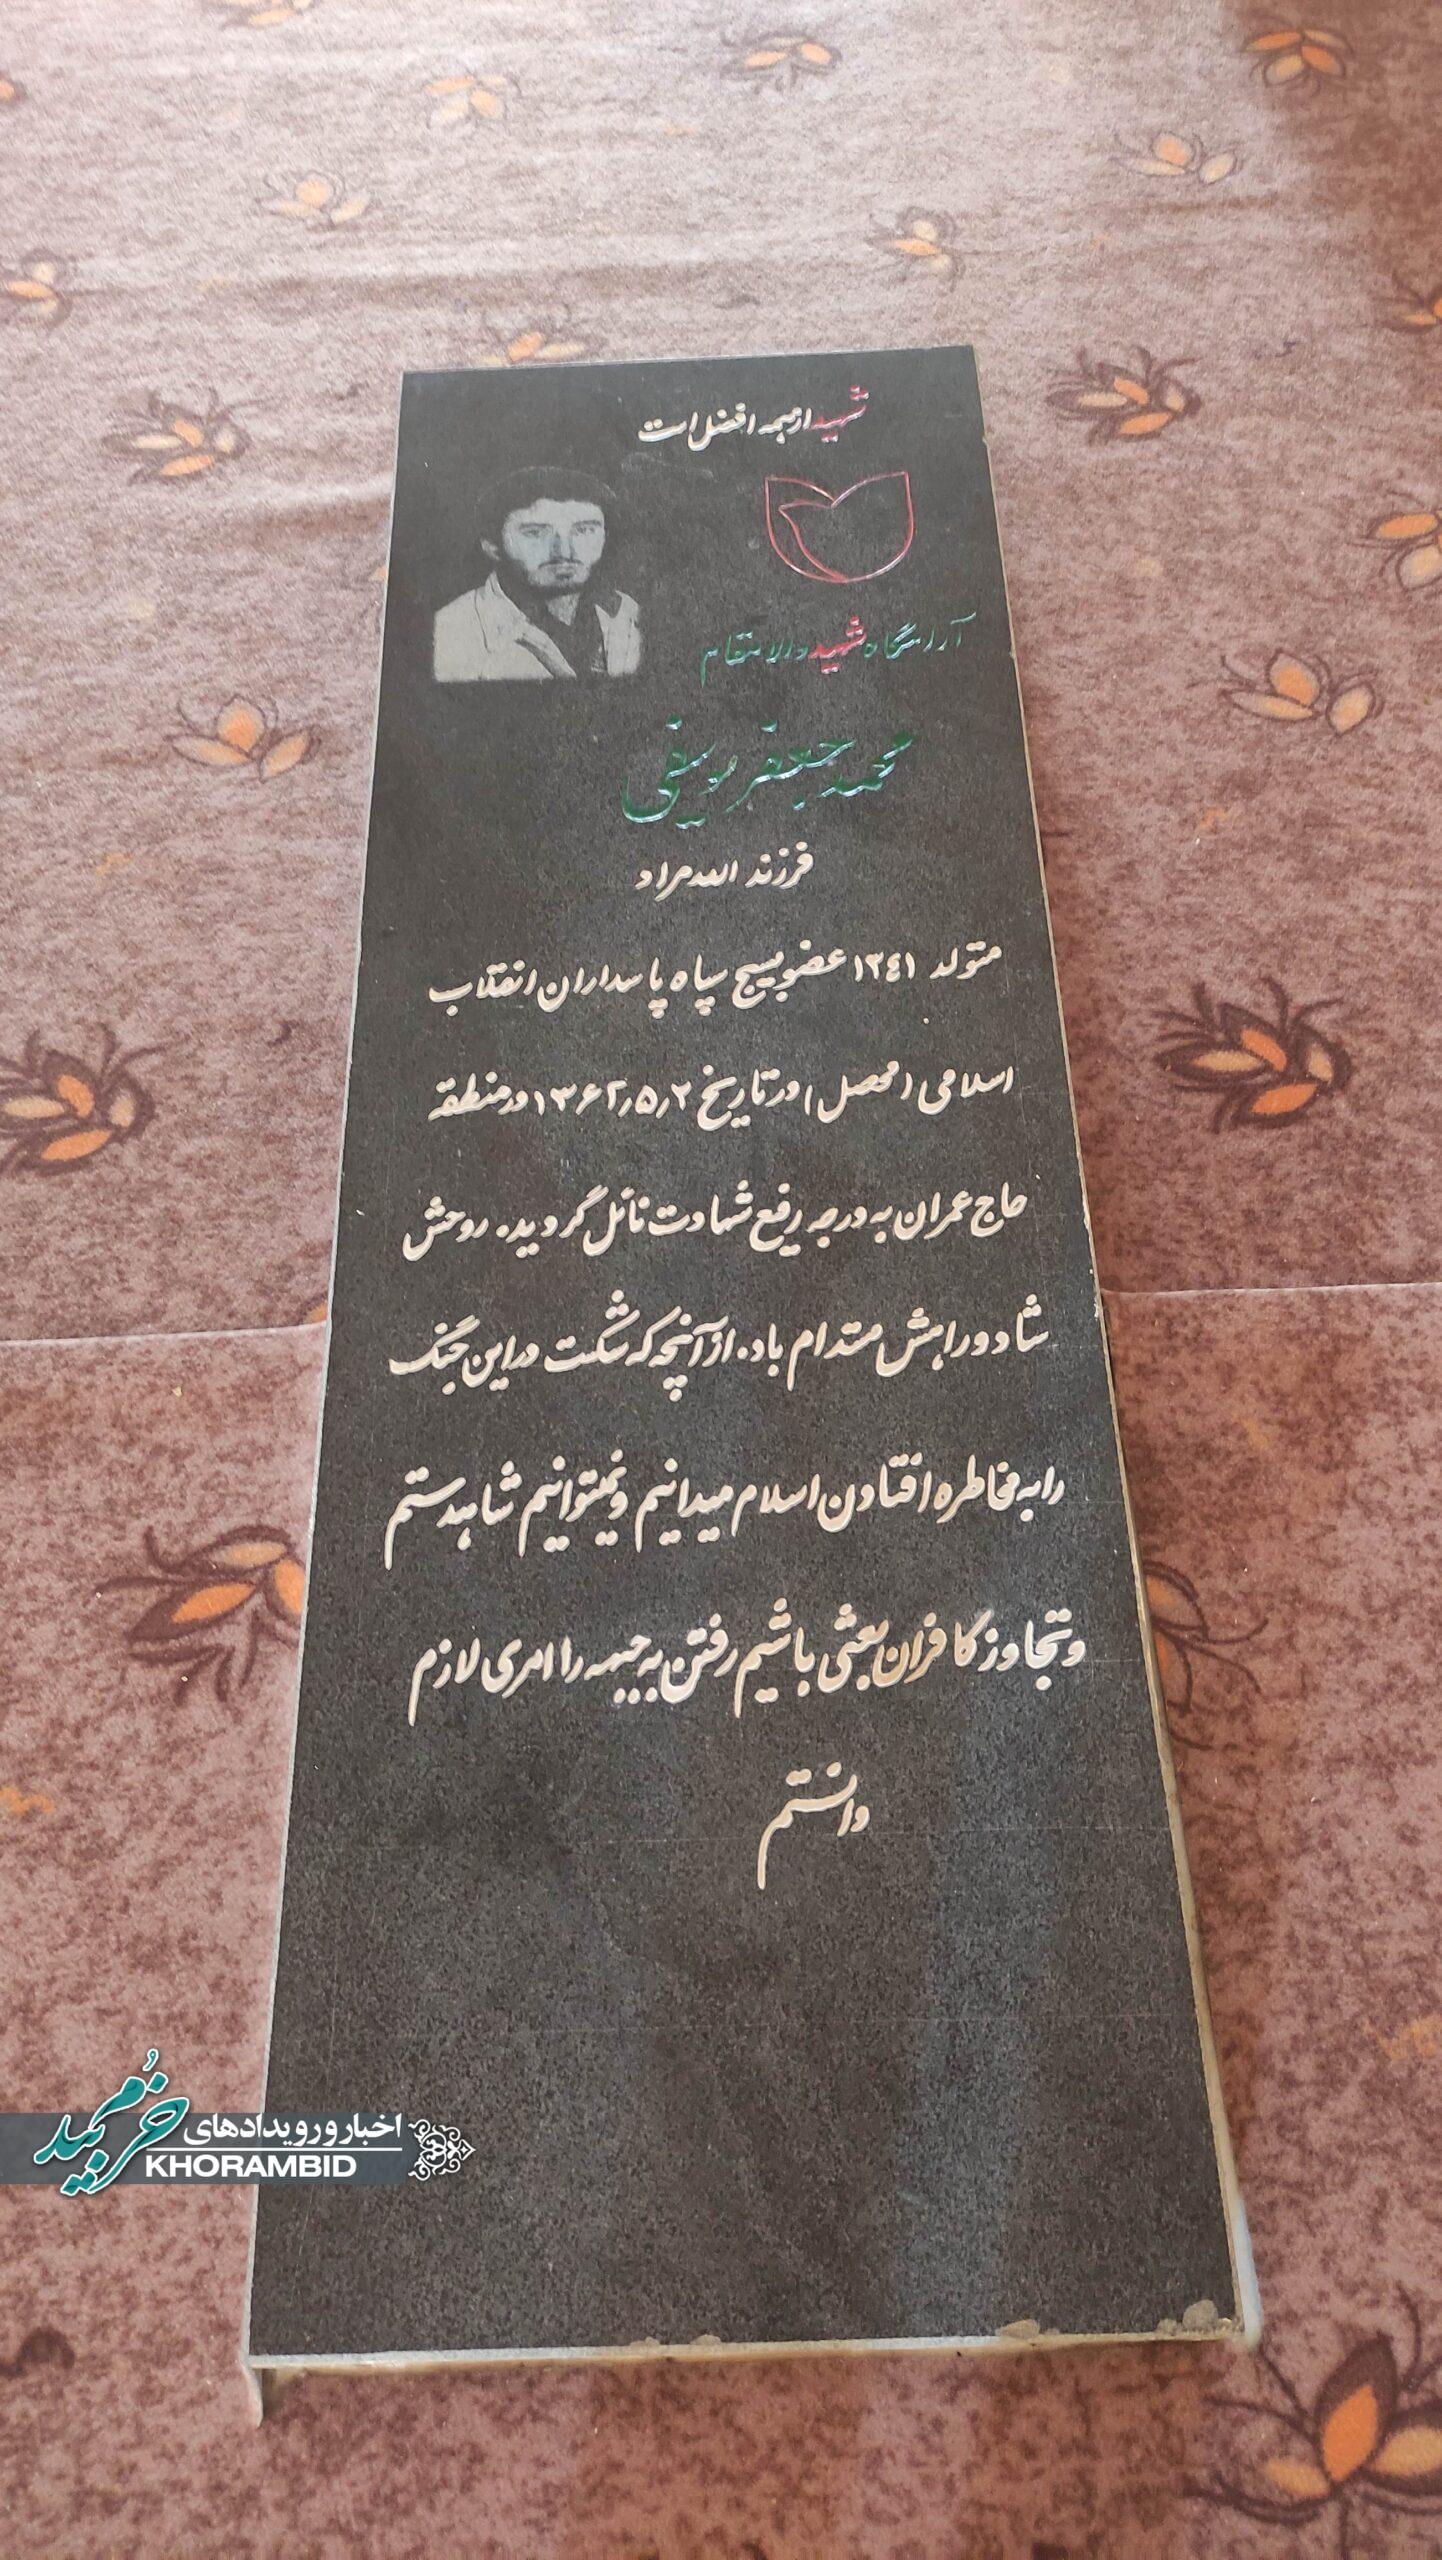 شهید از همه افضل است
آرامگاه شهید والامقام
محمد جعفر یوسفی
فرزند الله مراد
متولد ۱۳٤۱ عضو بسیج سپاه پاسداران انقلاب
اسلامی (محصل) در تاریخ ۱۳۶۲٫۵٫۲ در منطقه
حاج عمران به درجه رفیع شهادت نائل گردید. روحش
شاد و راهش مستدام باد. از آنچه که شکست در این جنگ
را به مخاطره افتادن اسلام میدانیم و نمیتوانیم شاهد ستم
و تجاوز کافران بعثی باشیم رفتن به جبهه را امری لازم
دانستم
اخبار و رویدادهای
خرمبید
KHORAMBID